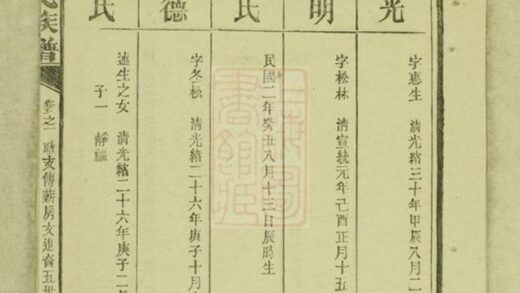 光
字惠生　清光緒三十年甲辰八月二
明
字松林　清宣統元年己酉正月十五
民
民國二年癸丑八月十三日辰時生
德
字冬松　清光緒二十六年庚子十月
民
遠生之女　清光緒二十六年庚子二
子一　靜
族譜
卷之一
支傳薪房友進裔五世